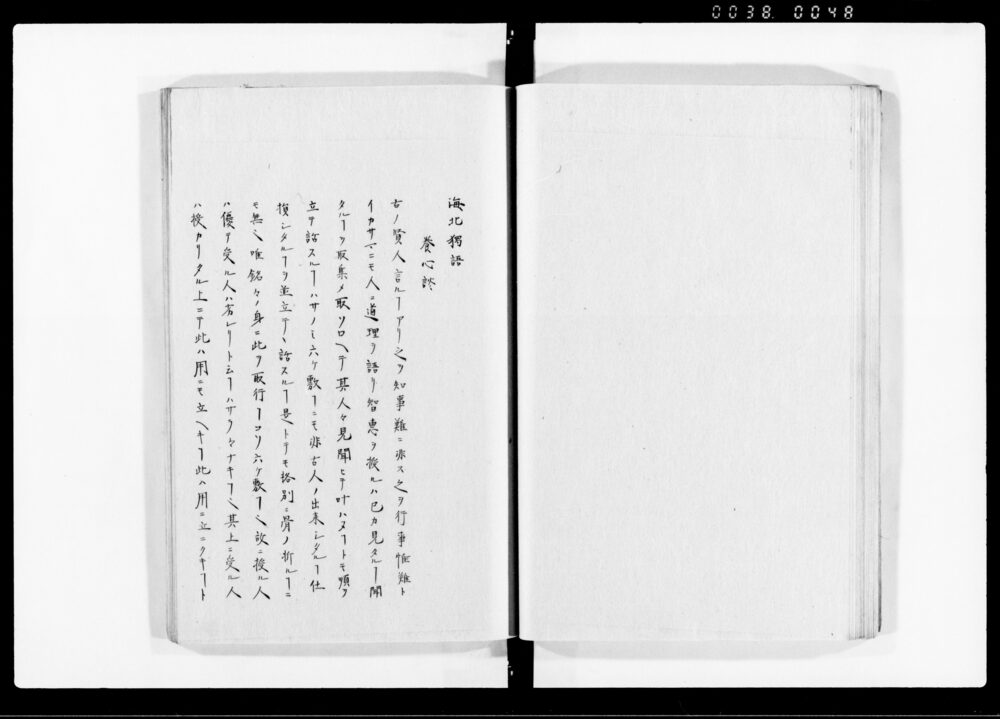 0038 0048
海北獨語
養心談
古ノ賢人言ルヿアリ之ヲ知事難ニ非ス之ヲ行事惟難ト
イカサマニモ人ニ道理ヲ語リ智恵ヲ授ルハ己カ見タルヿ聞
タルヿヲ取集メ取ソロヘテ其人々見聞ヒテ叶ハヌヿトモ
立テ話スルヿハサノミ六ケ敷ヿニモ非古人ノ出来シタルヿ仕
損シタルヿヲ並立テヽ話スルヿ是トテモ格別ニ骨ノ折ルヿニ
モ無シ唯銘々ノ身ニ此ヲ取行ヿコソ六ケ敷ヿ也故ニ授ル人
ハ優テ受ル人ハ劣レリト云ヿハサラ々ナキヿ也其上ニ受ル人
ハ授カリタル上ニテ此ハ用ニモ立ヘキヿ此ハ用ニ立ニクキヿト